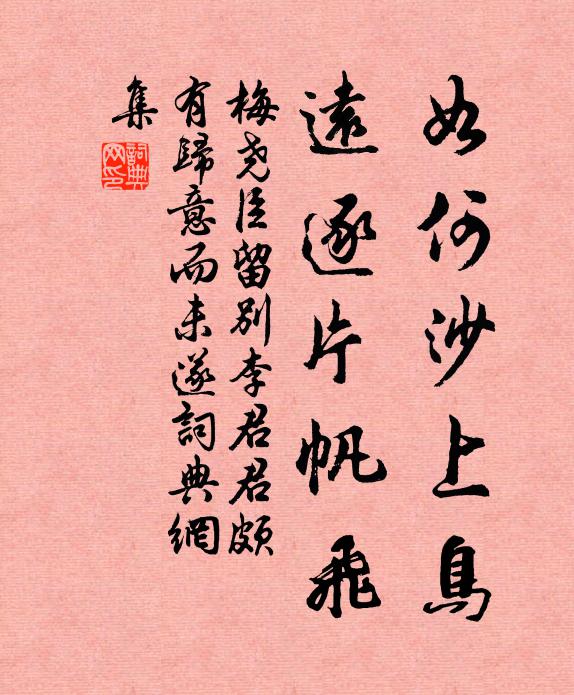 如何沙上鳥
遠逐片帆飛
梅堯臣留別李君君頗
有歸意而未遂詞典網
集
詞典網印